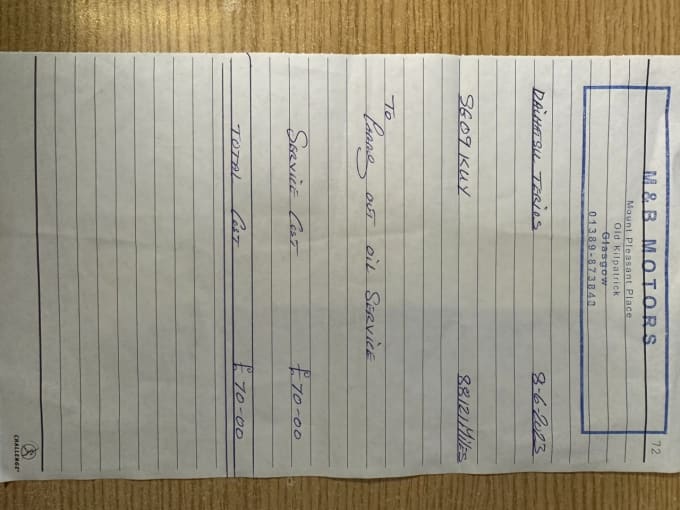 72
M & B MOTORS
Mount Pleasant Place
Old Kilpatrick
Glasgow
01389-873843
DAIHATSU TERIOS 8-6-2023
SG09KUY 88121 MILES
TO
CARRY OUT OIL SERVICE
SERVICE COST £70-00
TOTAL COST £70-00
CHALLENGE